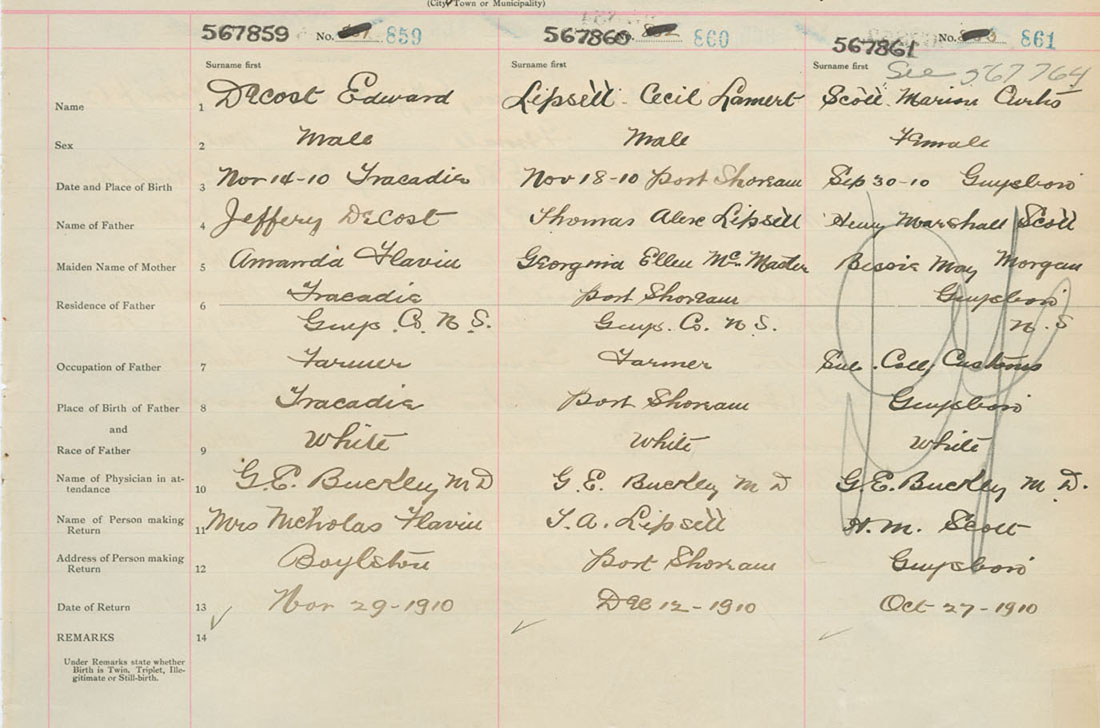 (City, Town or Municipality)
567859 No. 859 567860 No. 860 567861 No. 861
Surname first Surname first Surname first See 567764
Name 1 Decost Edward Lipsett Cecil Lamert Scott Marion Curtis
Sex 2 Male Male Female
Date and Place of Birth 3 Nov 14-10 Tracadie Nov 18-10 Port Shoream Sep 30-10 Guysboro
Name of Father 4 Jeffery DeCost Thomas Alex Lipsett Henry Marshall Scott
Maiden Name of Mother 5 Amanda Flavin Georginia Ellen McMaster Bessie May Morgan
Residence of Father 6 Tracadie Port Shoream Guysboro
Guys. Co. N S. Guys. Co. N S. N. S
Occupation of Father 7 Farmer Farmer Sub. Coll. Customs
Place of Birth of Father 8 Tracadie Port Shoream Guysboro
and
Race of Father 9 White White White
Name of Physician in at-
tendance 10 G.E. Buckley M D G.E. Buckley M D G.E. Buckley M. D.
Name of Person making
Return 11 Mrs Nicholas Flavin T.A. Lipsett H.M. Scott
Address of Person making
Return 12 Boylston Port Shoream Guysboro
Date of Return 13 Nov 29-1910 Dec 12-1910 Oct 27-1910
REMARKS 14
Under Remarks state whether
Birth is Twin, Triplet, Ille-
gitimate or Still-birth.